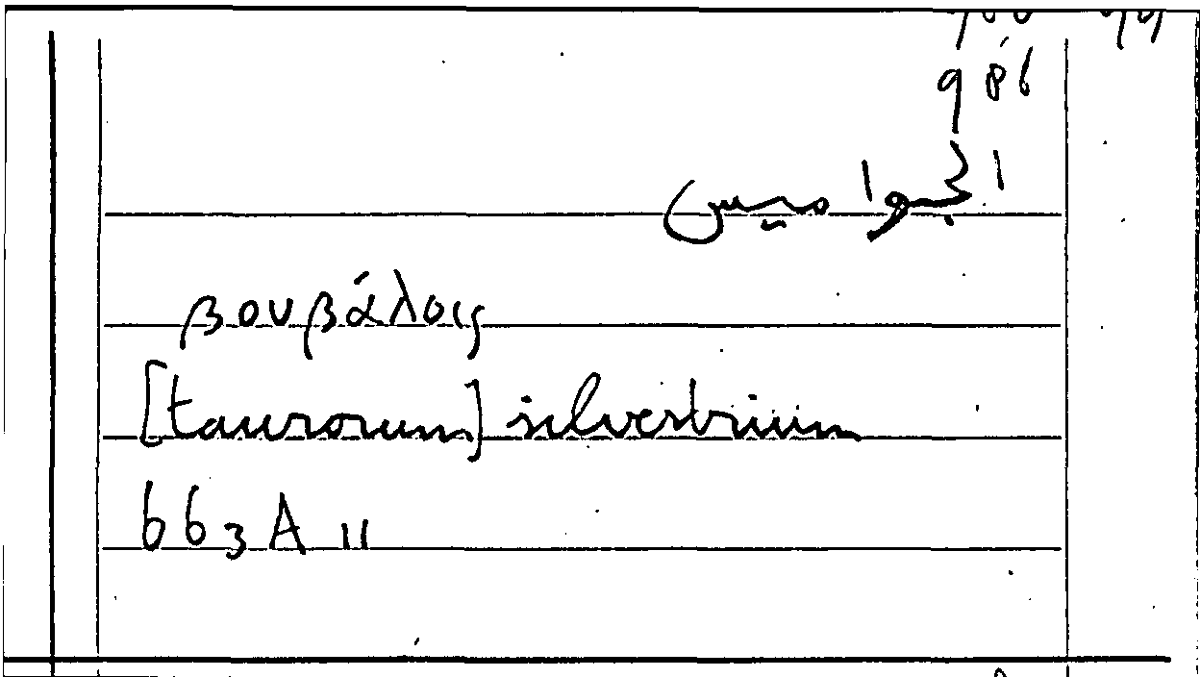 الجواميس
βουβάλοις
[taurorum] silvestrium
663 A 11